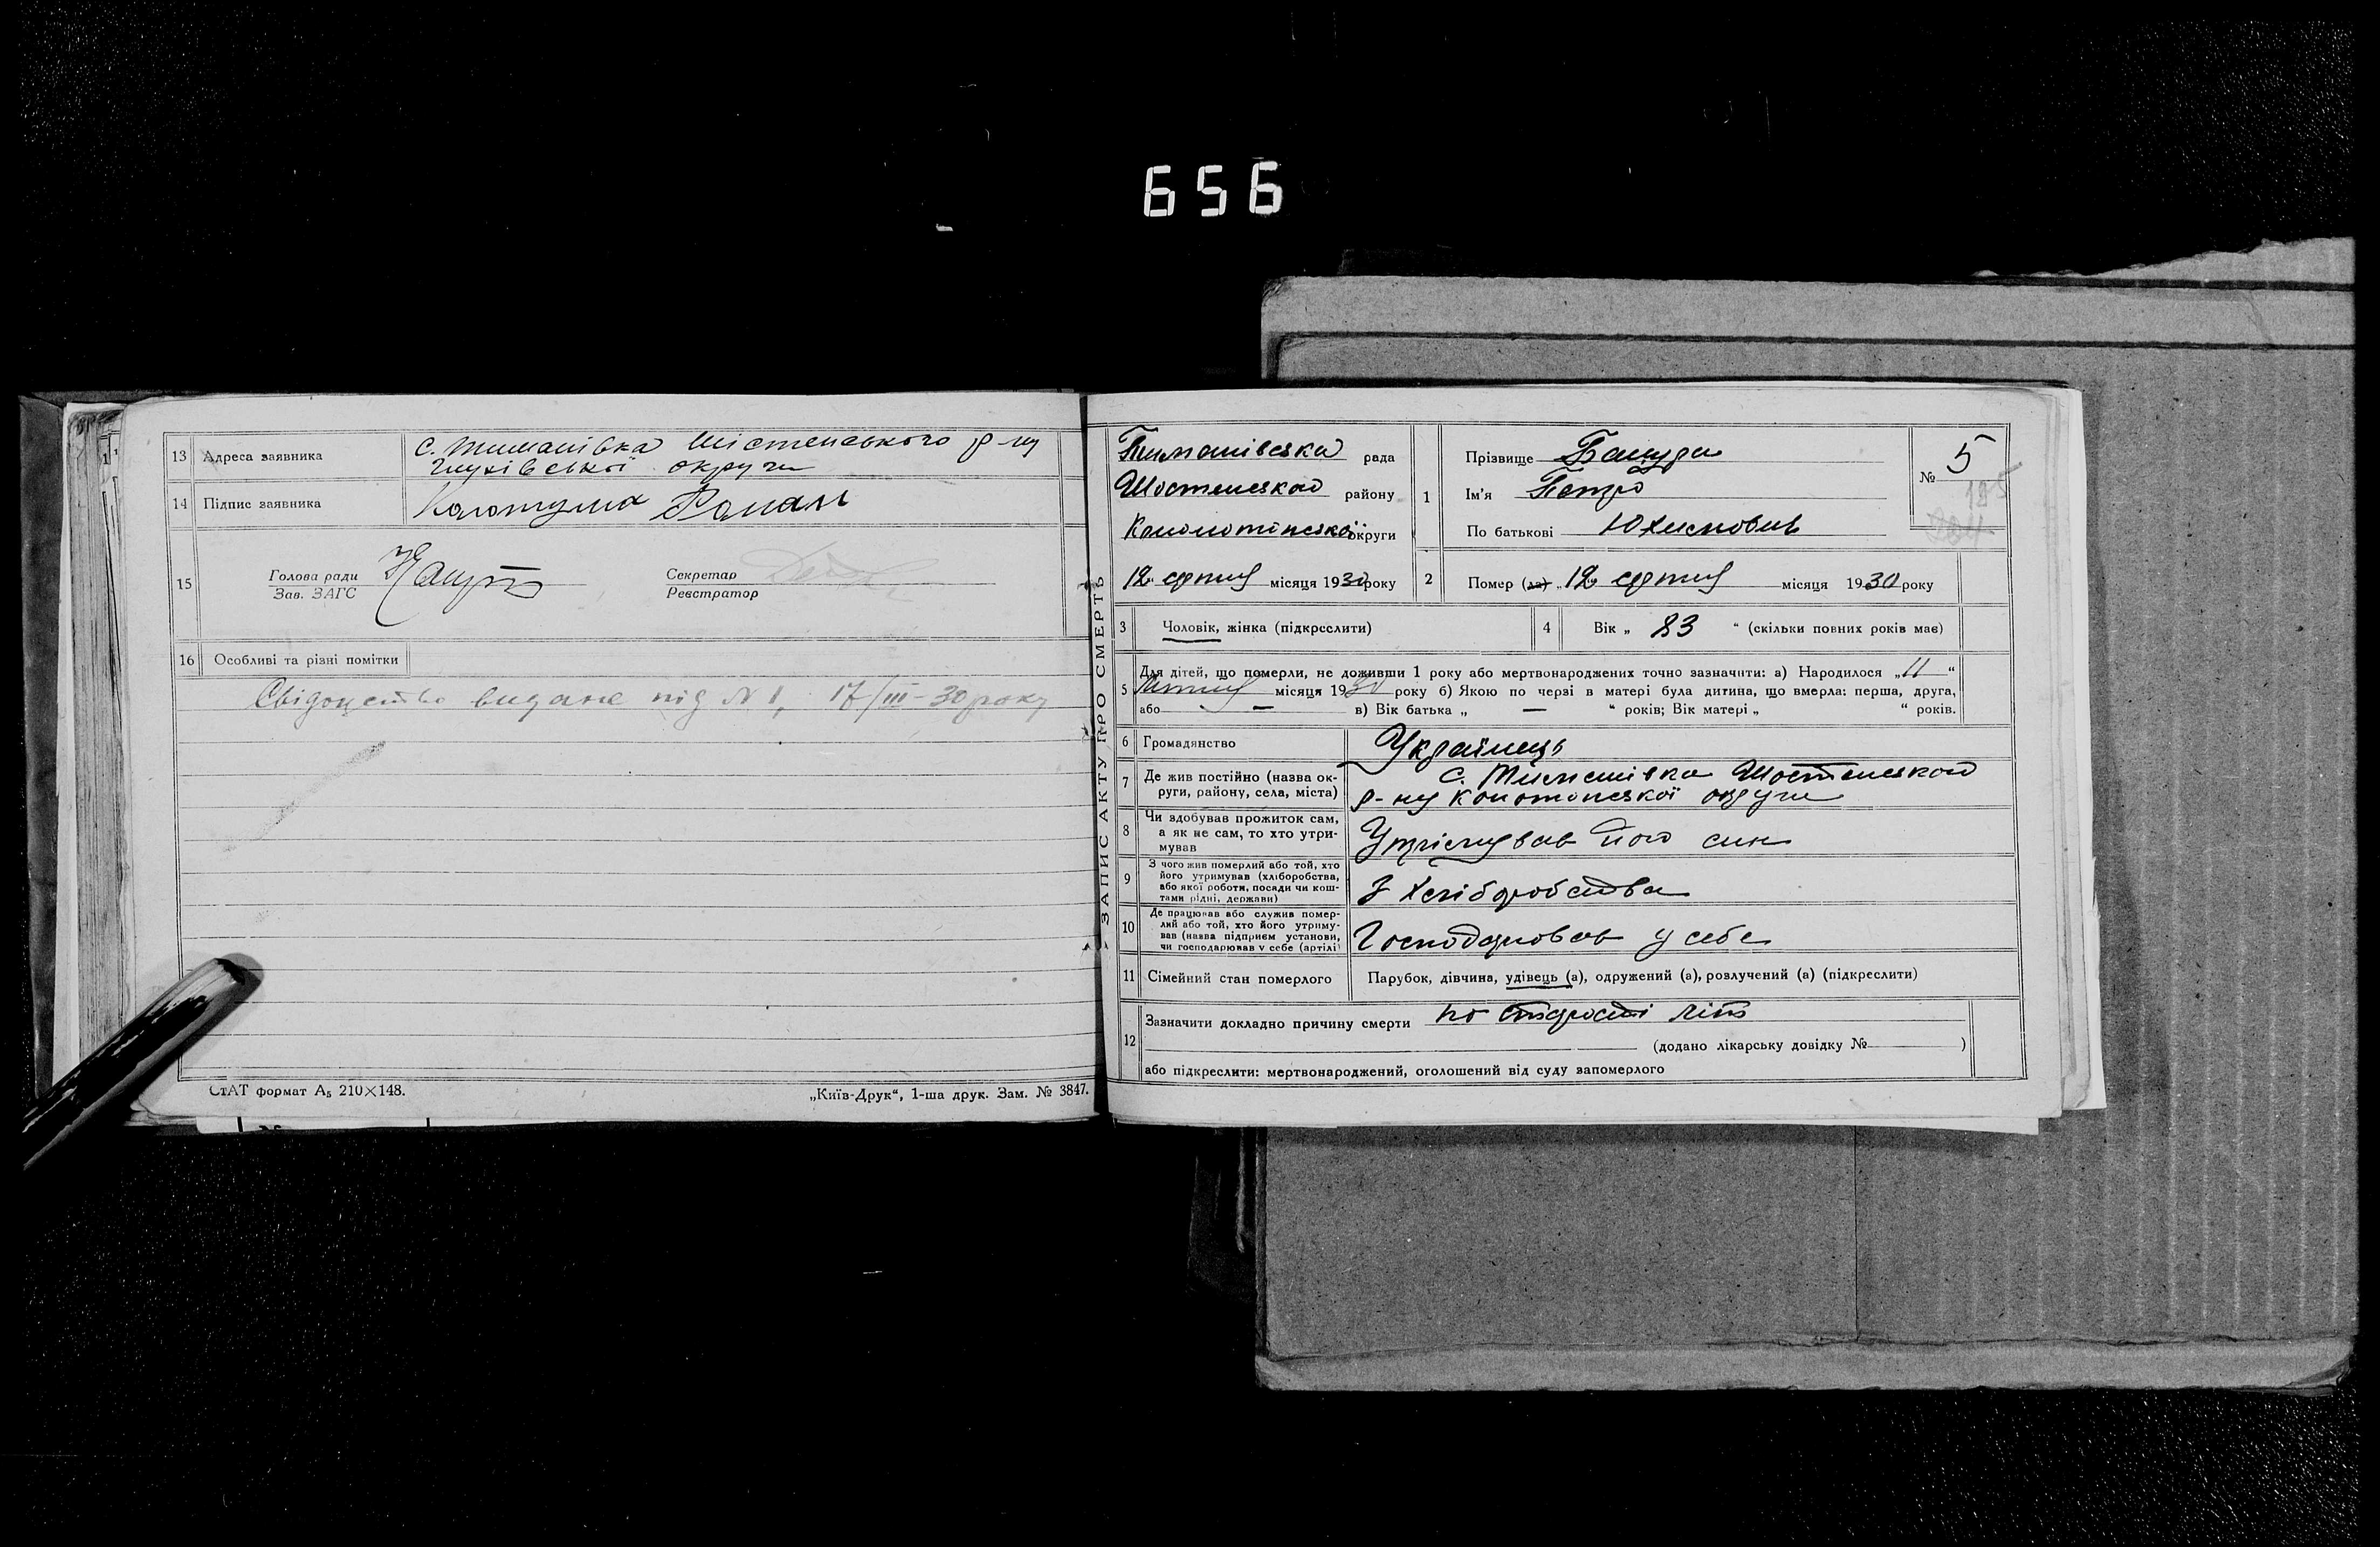 656
13 Адреса заявника
с. Тиманівка Шістенського р-ну
Глухівської округи
14 Підпис заявника
Роман
15
Голова ради
Зав. ЗАГС
Секретар
Реєстратор
16 Особливі та різні помітки
Свідоцтво видане під № 1, 17/III-30 року
СтАТ формат А5 210×148.
„Київ-Друк“, 1-ша друк. Зам. № 3847.
ЗАПИС АКТУ ПРО СМЕРТЬ
рада
Шостенского району
округи
12 місяця 1930 року
1
Прізвище
Ім'я Петро
По батькові Юхимович
№ 5
2 Помер (ла) „12 місяця 1930 року
3 Чоловік, жінка (підкреслити)
4 Вік „ 83 “ (скільки повних років має)
5 Для дітей, що померли, не доживши 1 року або мертвонароджених точно зазначити: а) Народилося „11“
місяця 1930 року б) Якою по черзі в матері була дитина, що вмерла: перша, друга,
або — в) Вік батька „ — “ років; Вік матері „ “ років.
6 Громадянство Українець
7 Де жив постійно (назва ок-
руги, району, села, міста)
с. Тиманівка Шостенского
р-ну Конотопскої округи
8 Чи здобував прожиток сам,
а як не сам, то хто утри-
мував
Утрімував його син
9 З чого жив померлий або той, хто
його утримував (хліборобства,
або якої роботи, посади чи кош-
тами рідні, держави)
З Хліборобства
10 Де працював або служив помер-
лий або той, хто його утриму-
вав (назва підприєм установи,
чи господарював у себе (артілі)
Господарював у себе
11 Сімейний стан померлого
Парубок, дівчина, удівець (а), одружений (а), розлучений (а) (підкреслити)
12 Зазначити докладно причину смерти по старості літ
(додано лікарську довідку № )
або підкреслити: мертвонароджений, оголошений від суду запомерлого